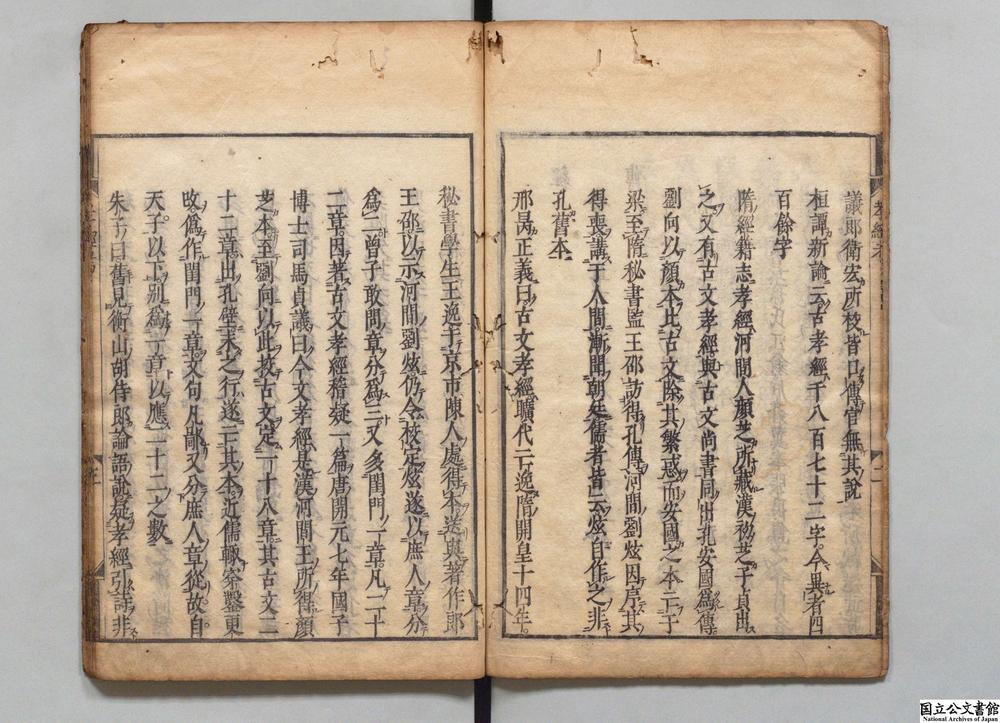 議郎衛宏所校皆口傳官無其說
桓譚新論云古孝經千八百七十二字今異者四
百餘字
隋經籍志孝經河間人顏芝所藏漢初芝子貞出
之又有古文孝經與古文尚書同出孔安國為傳
劉向以顏本比古文除其繁惑而安國之本亡于
梁至隋秘書監王邵訪得孔傳河間劉炫因序其
得喪講于人間漸聞朝廷儒者皆云炫自作之非
孔舊本
邢昺正義曰古文孝經曠代亡逸隋開皇十四年
秘書學生王逸于京市陳人處得本送與著作郎
王邵以示河間劉炫仍令校定炫遂以庶人章分
為二曾子敢問章分為三又多閨門一章凡二十
二章因著古文孝經稽疑一篇唐開元七年國子
博士司馬貞議曰今文孝經是漢河間王所得顏
芝本至劉向以此校古文定一十八章其古文二
十二章出孔壁未之行遂亡其本近儒輒穿鑿更
改為作閨門一章文句凡鄙又分庶人章從故自
天子以下別為一章以應二十二之數
朱子曰舊見衡山胡侍郎論語說疑孝經引詩非
孝經考
國立公文書館
National Archives of Japan